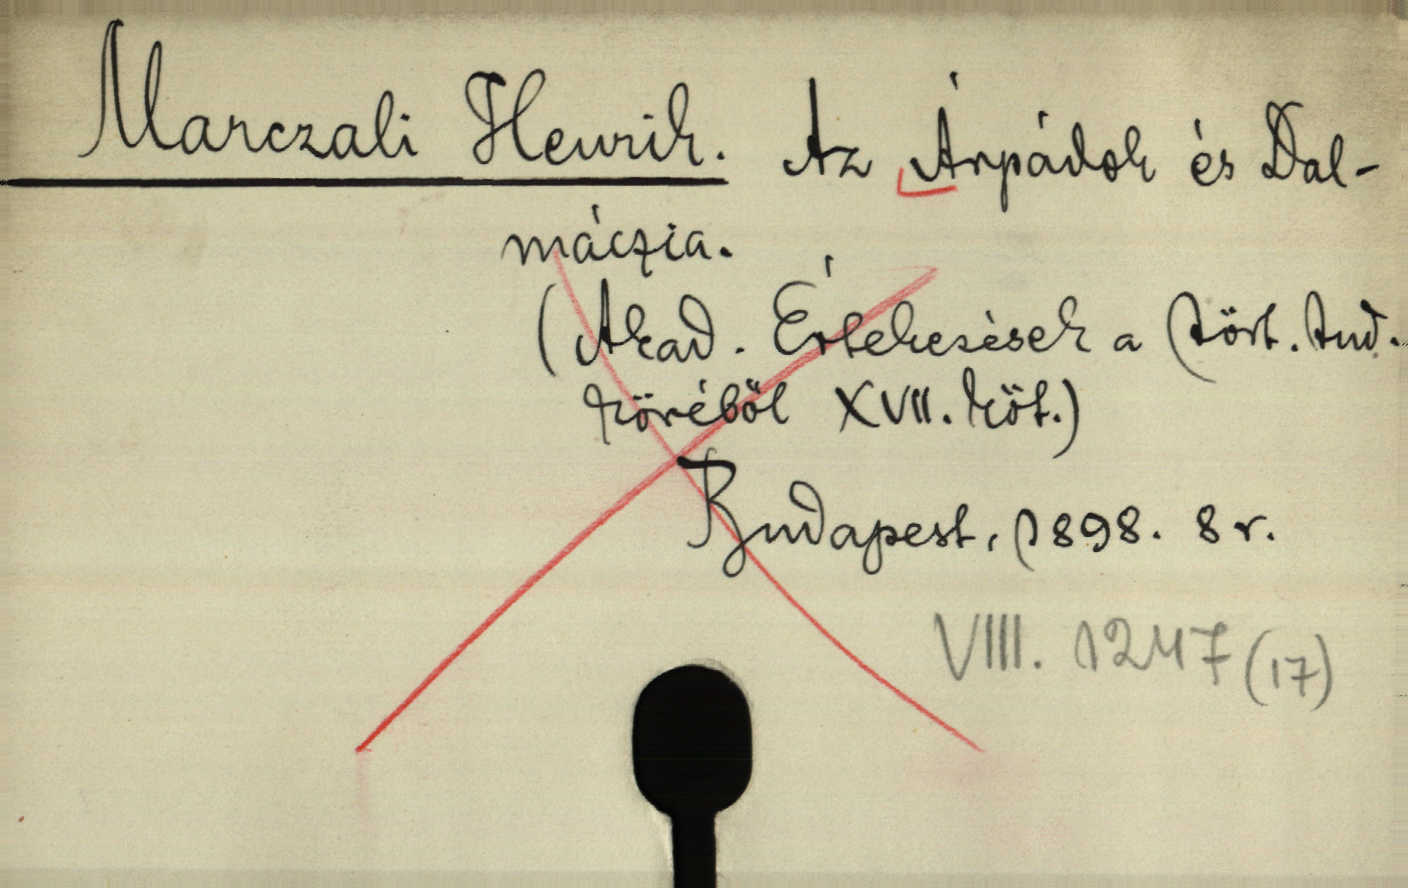 Marczali Henrik. Az Árpádok és Dal-
máczia.
(Akad. Értekezések a tört. tud.
köréből XVII. köt.)
Budapest, 1898. 8 r.
VIII. 1247 (17)